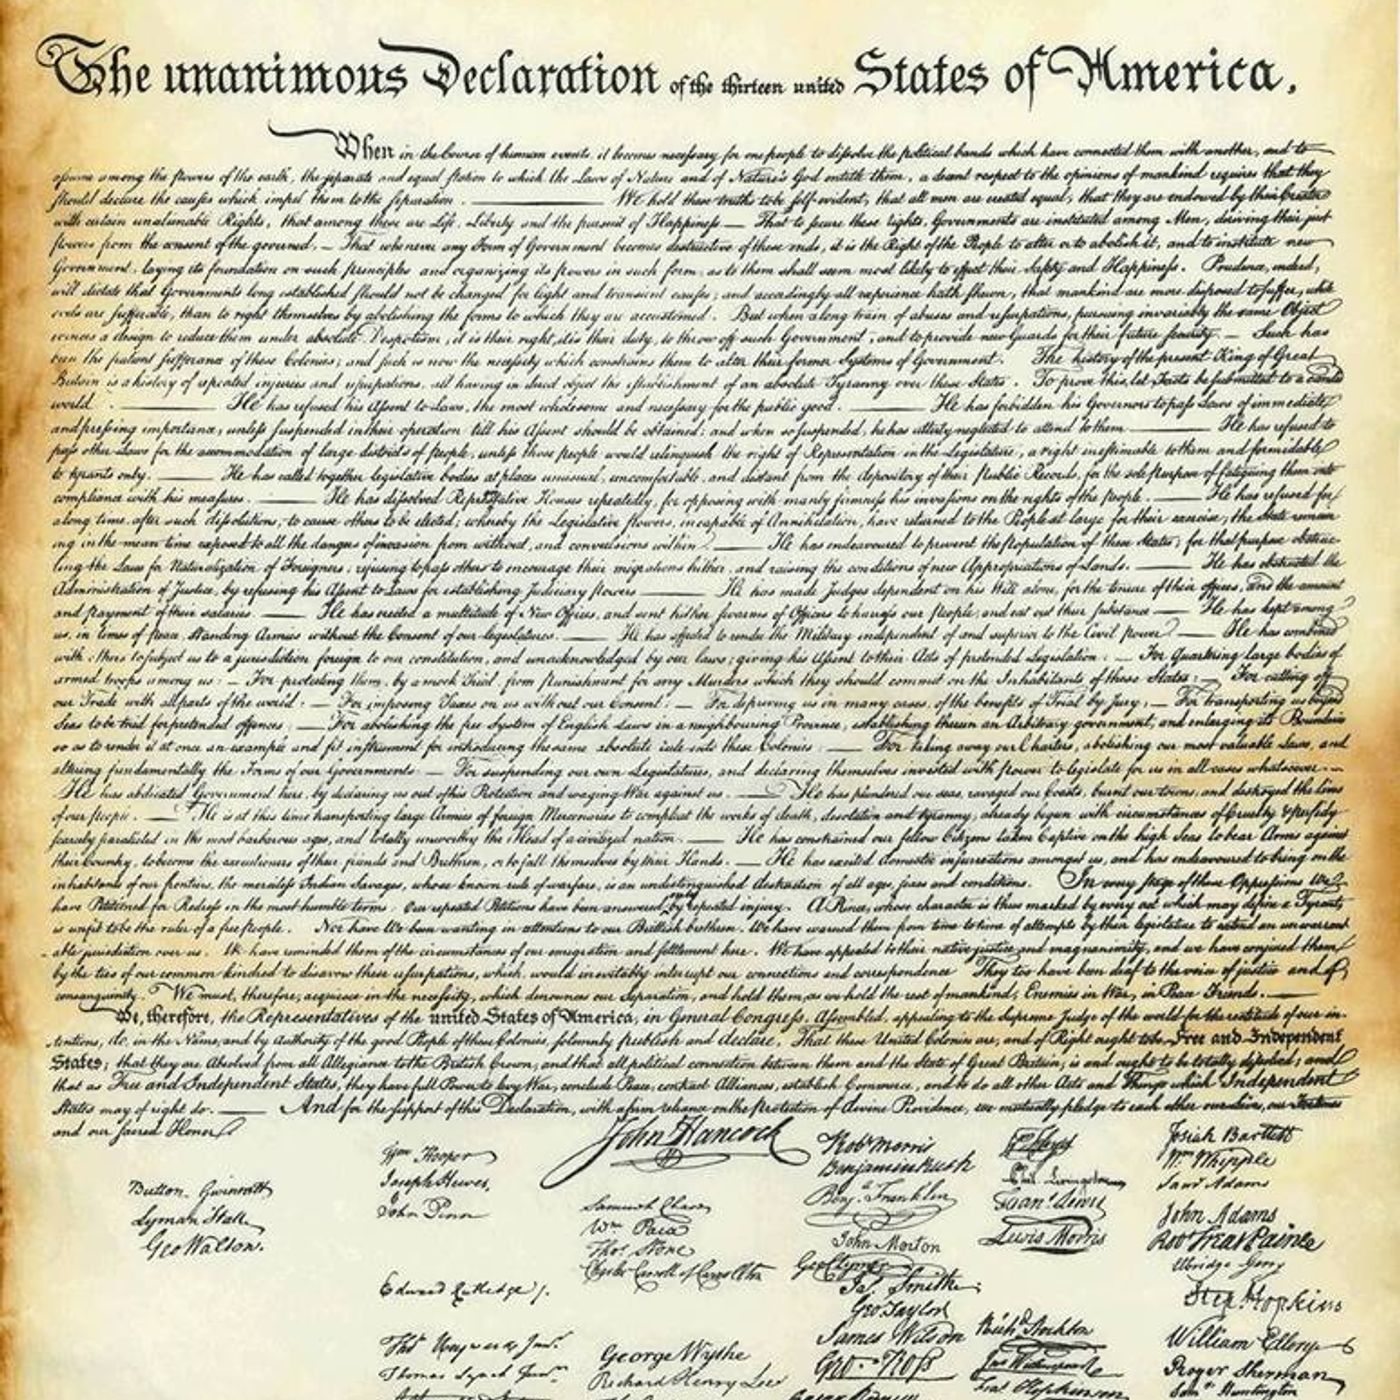 The unanimous Declaration of the thirteen united States of America,
When in the Course of human events, it becomes necessary for one people to dissolve the political bands which have connected them with another, and to
assume among the powers of the earth, the separate and equal station to which the Laws of Nature and of Nature's God entitle them, a decent respect to the opinions of mankind requires that they
should declare the causes which impel them to the separation. — We hold these truths to be self-evident, that all men are created equal, that they are endowed by their Creator
with certain unalienable Rights, that among these are Life, Liberty and the pursuit of Happiness. — That to secure these rights, Governments are instituted among Men, deriving their just
powers from the consent of the governed, — That whenever any Form of Government becomes destructive of these ends, it is the Right of the People to alter or to abolish it, and to institute new
Government, laying its foundation on such principles and organizing its powers in such form, as to them shall seem most likely to effect their Safety and Happiness. Prudence, indeed,
will dictate that Governments long established should not be changed for light and transient causes; and accordingly all experience hath shewn, that mankind are more disposed to suffer, while
evils are sufferable, than to right themselves by abolishing the forms to which they are accustomed. But when a long train of abuses and usurpations, pursuing invariably the same Object
evinces a design to reduce them under absolute Despotism, it is their right, it is their duty, to throw off such Government, and to provide new Guards for their future security. — Such has
been the patient sufferance of these Colonies; and such is now the necessity which constrains them to alter their former Systems of Government. The history of the present King of Great
Britain is a history of repeated injuries and usurpations, all having in direct object the establishment of an absolute Tyranny over these States. To prove this, let Facts be submitted to a candid
world. — He has refused his Assent to Laws, the most wholesome and necessary for the public good. — He has forbidden his Governors to pass Laws of immediate
and pressing importance, unless suspended in their operation till his Assent should be obtained; and when so suspended, he has utterly neglected to attend to them. — He has refused to
pass other Laws for the accommodation of large districts of people, unless those people would relinquish the right of Representation in the Legislature, a right inestimable to them and formidable
to tyrants only. — He has called together legislative bodies at places unusual, uncomfortable, and distant from the depository of their Public Records, for the sole purpose of fatiguing them into
compliance with his measures. — He has dissolved Representative Houses repeatedly, for opposing with manly firmness his invasions on the rights of the people. — He has refused for
a long time, after such dissolutions, to cause others to be elected; whereby the Legislative powers, incapable of Annihilation, have returned to the People at large for their exercise; the State remain
ing in the mean time exposed to all the dangers of invasion from without, and convulsions within. — He has endeavoured to prevent the population of these States; for that purpose obstruc-
ting the Laws for Naturalization of Foreigners; refusing to pass others to encourage their migrations hither, and raising the conditions of new Appropriations of Lands. — He has obstructed the
Administration of Justice, by refusing his Assent to Laws for establishing Judiciary powers — He has made Judges dependent on his Will alone, for the tenure of their offices, and the amount
and payment of their salaries — He has erected a multitude of New Offices, and sent hither swarms of Officers to harrass our people, and eat out their substance — He has kept among
us, in times of peace, Standing Armies without the Consent of our legislatures. — He has affected to render the Military independent of and superior to the Civil power. — He has combined
with others to subject us to a jurisdiction foreign to our constitution, and unacknowledged by our laws; giving his Assent to their Acts of pretended Legislation: — For Quartering large bodies of
armed troops among us: — For protecting them, by a mock Trial, from punishment for any Murders which they should commit on the Inhabitants of these States: — For cutting off
our Trade with all parts of the world: — For imposing Taxes on us without our Consent: — For depriving us in many cases, of the benefits of Trial by Jury; — For transporting us beyond
Seas to be tried for pretended offences — For abolishing the free System of English Laws in a neighbouring Province, establishing therein an Arbitrary government, and enlarging its Boundaries
so as to render it at once an example and fit instrument for introducing the same absolute rule into these Colonies: — For taking away our Charters, abolishing our most valuable Laws, and
altering fundamentally the Forms of our Governments: — For suspending our own Legislatures, and declaring themselves invested with power to legislate for us in all cases whatsoever. —
He has abdicated Government here, by declaring us out of his Protection and waging War against us. — He has plundered our seas, ravaged our Coasts, burnt our towns, and destroyed the lives
of our people. — He is at this time transporting large Armies of foreign Mercenaries to compleat the works of death, desolation and tyranny, already begun with circumstances of Cruelty & perfidy
scarcely paralleled in the most barbarous ages, and totally unworthy the Head of a civilized nation. — He has constrained our fellow Citizens taken Captive on the high Seas to bear Arms against
their Country, to become the executioners of their friends and Brethren, or to fall themselves by their Hands. — He has excited domestic insurrections amongst us, and has endeavoured to bring on the
inhabitants of our frontiers, the merciless Indian Savages, whose known rule of warfare, is an undistinguished destruction of all ages, sexes and conditions. In every stage of these Oppressions We
have Petitioned for Redress in the most humble terms: Our repeated Petitions have been answered only by repeated injury. A Prince, whose character is thus marked by every act which may define a Tyrant,
is unfit to be the ruler of a free people. Nor have We been wanting in attentions to our Brittish brethren. We have warned them from time to time of attempts by their legislature to extend an unwarrant
able jurisdiction over us. We have reminded them of the circumstances of our emigration and settlement here. We have appealed to their native justice and magnanimity, and we have conjured them
by the ties of our common kindred to disavow these usurpations, which, would inevitably interrupt our connections and correspondence They too have been deaf to the voice of justice and of
consanguinity. We must, therefore, acquiesce in the necessity, which denounces our Separation, and hold them, as we hold the rest of mankind, Enemies in War, in Peace Friends. —
We, therefore, the Representatives of the united States of America, in General Congress, Assembled, appealing to the Supreme Judge of the world for the rectitude of our in-
tentions, do, in the Name, and by Authority of the good People of these Colonies, solemnly publish and declare, That these United Colonies are, and of Right ought to be Free and Independent
States; that they are Absolved from all Allegiance to the British Crown, and that all political connection between them and the State of Great Britain, is and ought to be totally dissolved; and
that as Free and Independent States, they have full Power to levy War, conclude Peace, contract Alliances, establish Commerce, and to do all other Acts and Things which Independent
States may of right do. — And for the support of this Declaration, with a firm reliance on the protection of divine Providence, we mutually pledge to each other our Lives, our Fortunes
and our sacred Honor.
John Hancock
Button Gwinnett
Lyman Hall
Geo Walton.
Wm Hooper
Joseph Hewes,
John Penn
Edward Rutledge /.
Thos Heyward Junr.
Thomas Lynch Junr.
Samuel Chase
Wm Paca
Thos. Stone
Charles Carroll of Carrollton
George Wythe
Richard Henry Lee
Robt Morris
Benjamin Rush
Benj. Franklin
John Morton
Geo Clymer
Jas. Smith
Geo. Taylor
James Wilson
Geo. Ross
Caesar Rodney
Wm Floyd
Phil. Livingston
Frans. Lewis
Lewis Morris
Richd. Stockton
Jno Witherspoon
Fras. Hopkinson
Josiah Bartlett
Wm Whipple
Saml Adams
John Adams
Robt Treat Paine
Elbridge Gerry
Step. Hopkins
William Ellery
Roger Sherman
Saml Huntington